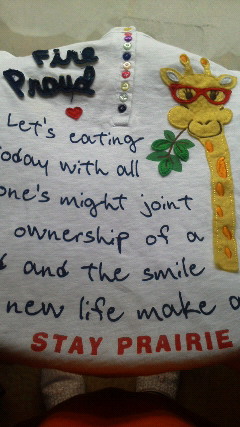 Fire
Proud
Let's eating
today with all
one's might joint
ownership of a
and the smile
new life make a
STAY PRAIRIE